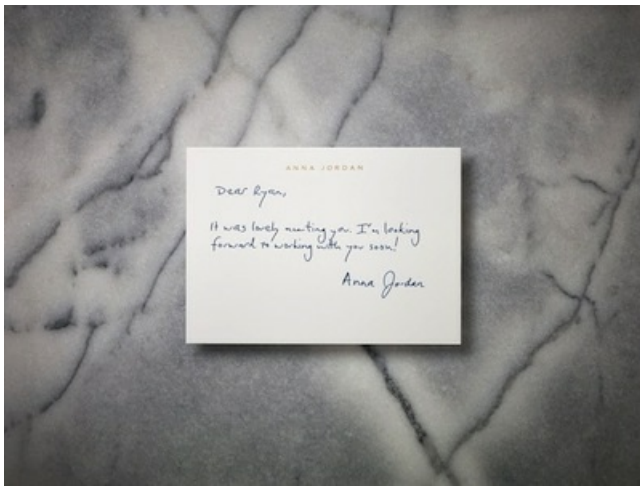 ANNA JORDAN
Dear Ryan,
It was lovely meeting you. I'm looking
forward to working with you soon!
Anna Jordan